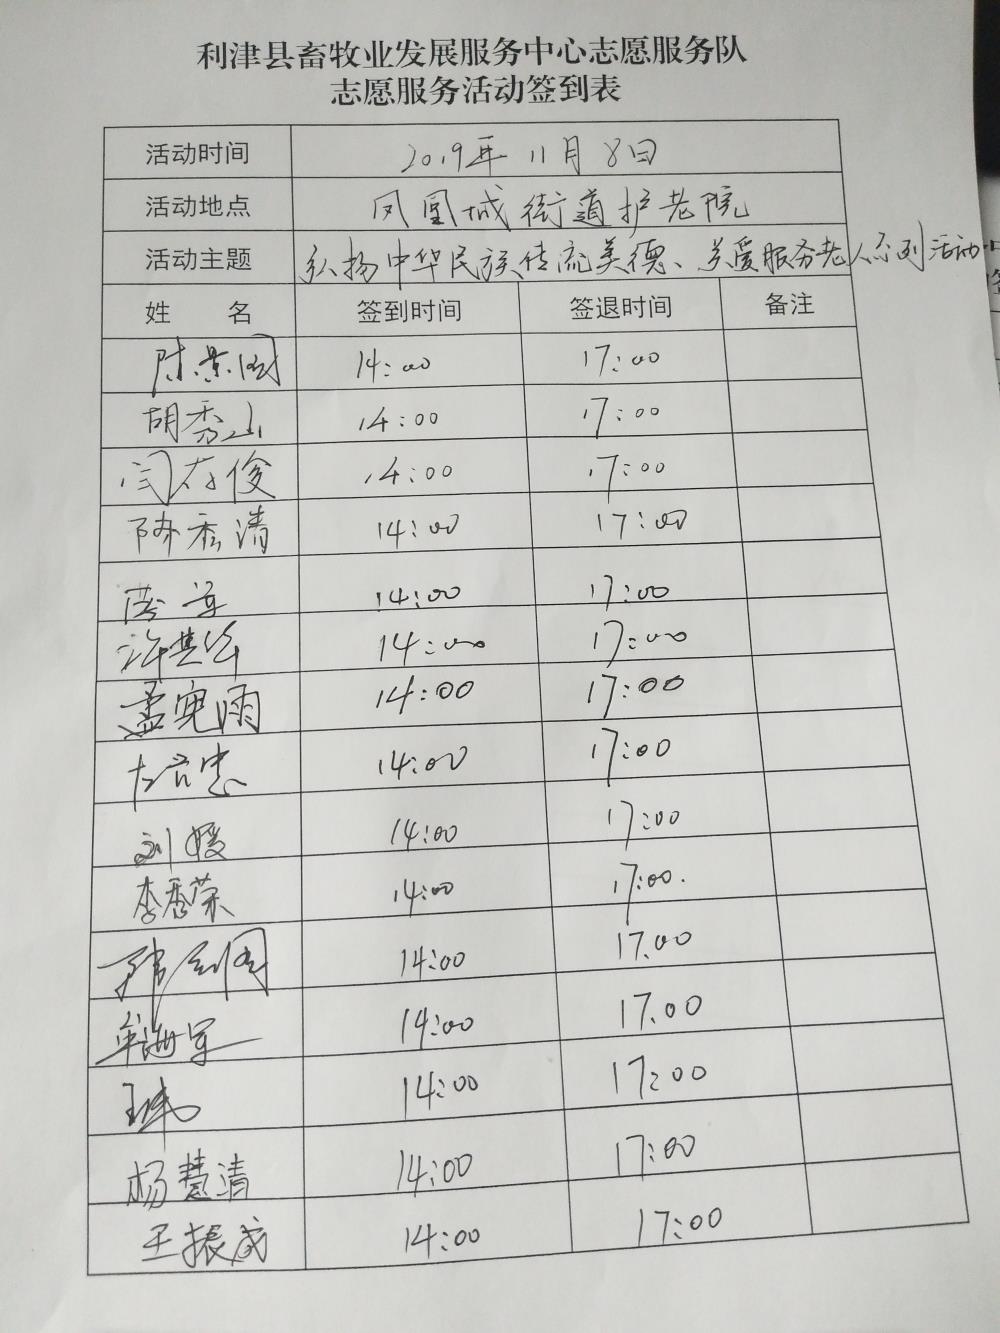 利津县畜牧业发展服务中心志愿服务队
志愿服务活动签到表
活动时间 2019年11月8日
活动地点 凤凰城街道护老院
活动主题 弘扬中华民族传流美德、关爱服务老人系列活动
姓 名 签到时间 签退时间 备注
陈景国 14:00 17:00
胡秀山 14:00 17:00
闫存俊 14:00 17:00
陈秀清 14:00 17:00
14:00 17:00
许其华 14:00 17:00
孟宪雨 14:00 17:00
14:00 17:00
刘媛 14:00 17:00
李秀荣 14:00 17:00.
14:00 17.00
单海军 14:00 17.00
14:00 17:00
杨慧清 14:00 17:00
王振成 14:00 17:00